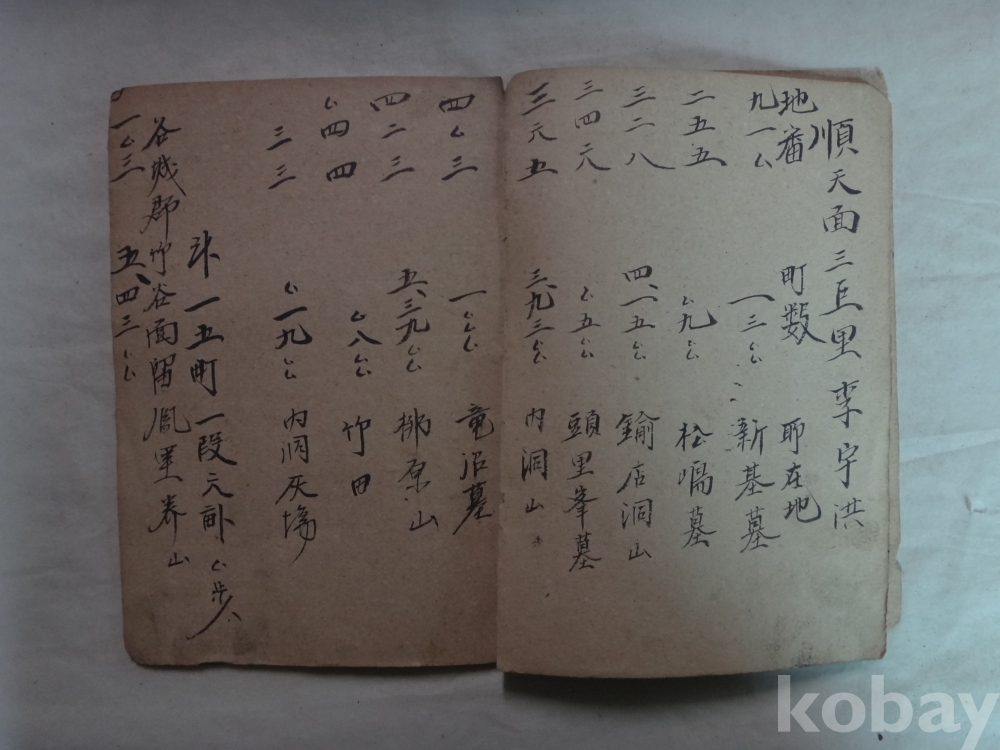 順天面三巨里 李宇洪
地番 町數 所在地
九一〇 一三〇〇 新基墓
二五五 〇九〇 松嶋墓
三二八 四、一五〇 鍮店洞山
三四六 〇五〇 頭里峯墓
三六五 三、九三〇〇 內洞山
四〇三 一〇〇 竜沼墓
四二三 五、三九〇 柳原山
〇四四 〇八〇〇 竹田
三三 〇一九〇〇 內洞灰場
計 一五町一段六畝〇步
谷城郡竹谷面留鳳里养山
一〇三 五、四三〇〇
kobay